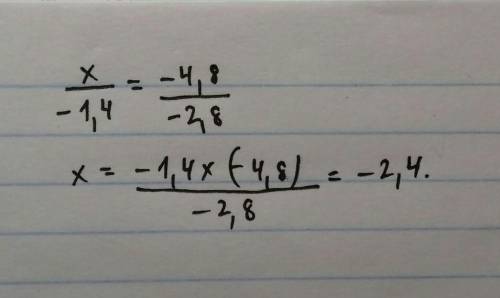 x/-1,4 = -4,8/-2,8
x = -1,4x(-4,8)/-2,8 = -2,4.